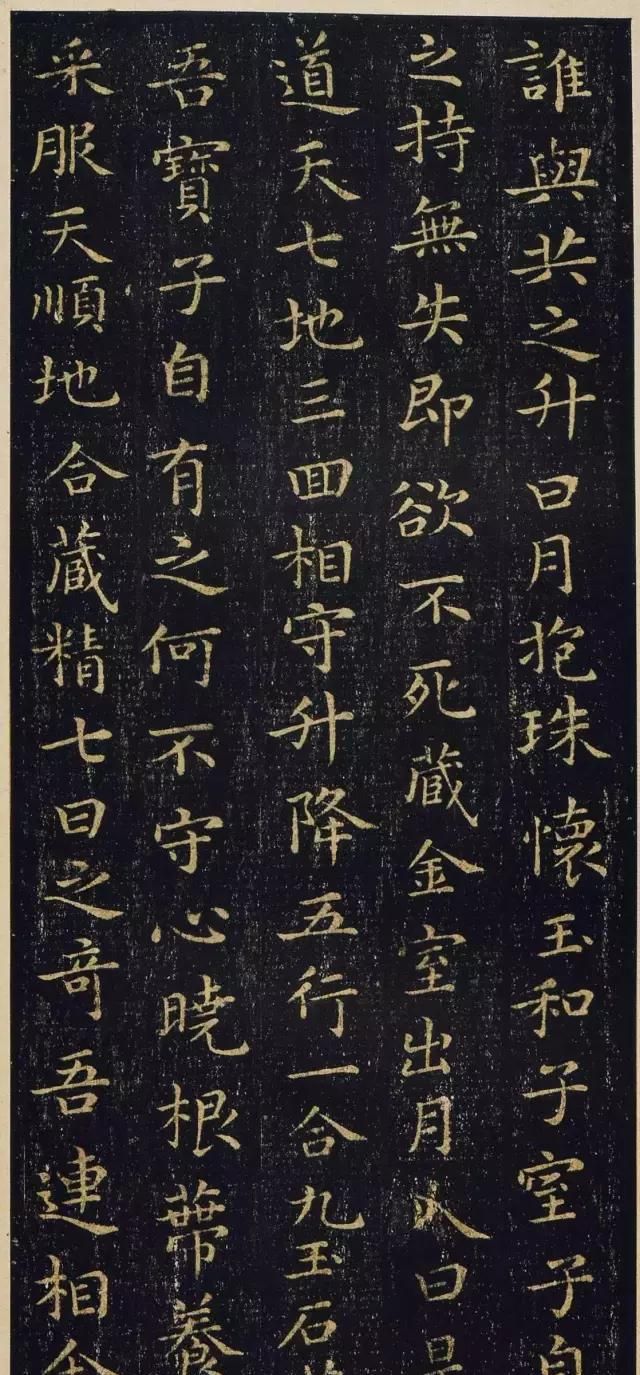 誰與共之升日月抱珠懷玉和子室子自
之持無失即欲不死藏金室出月入日是
道天七地三回相守升降五行一合九玉石
吾寶子自有之何不守心曉根蔕養
采服天順地合藏精七日之奇吾連相合